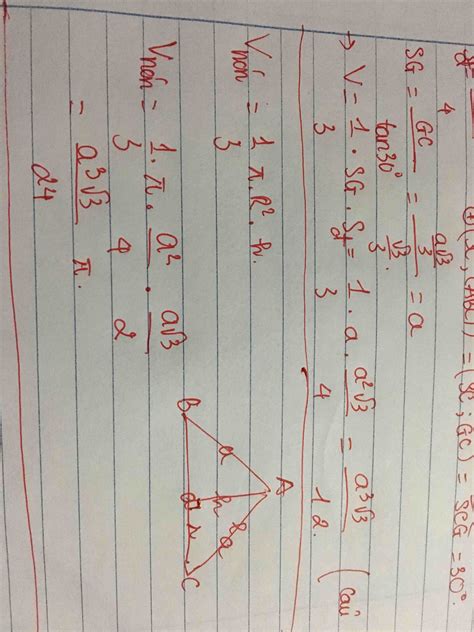 4
((SC, (ABC)) = (SC ; GC) = SCG = 30°.
SG = GC / tan30° = (a√3/3) / (√3/3) = a
→ V = 1/3 · SG · Sđ = 1/3 · a · a²√3/4 = a³√3/12. (Câu
Vnón = 1/3 π.R².h.
Vnón = 1/3 · π · a²/4 · a√3/2
= a³√3/24 π.
A
a
h
a
B
r
C